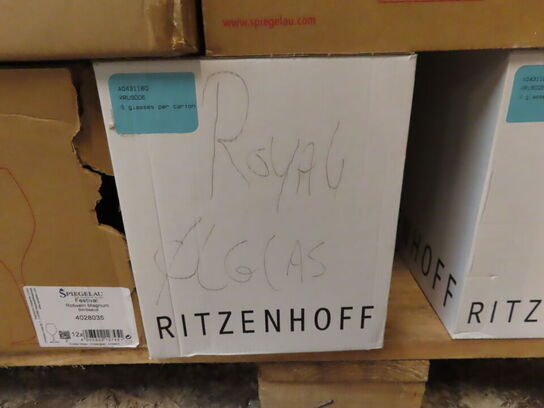 www.spiegelau.com
A0431160
RRUS006
6 glasses per carton
ROYAL
ØLGLAS
RITZENHOFF
SPIEGELAU
Festival
Rotwein Magnum
4028035
12x
A0431160
RITZENHOFF